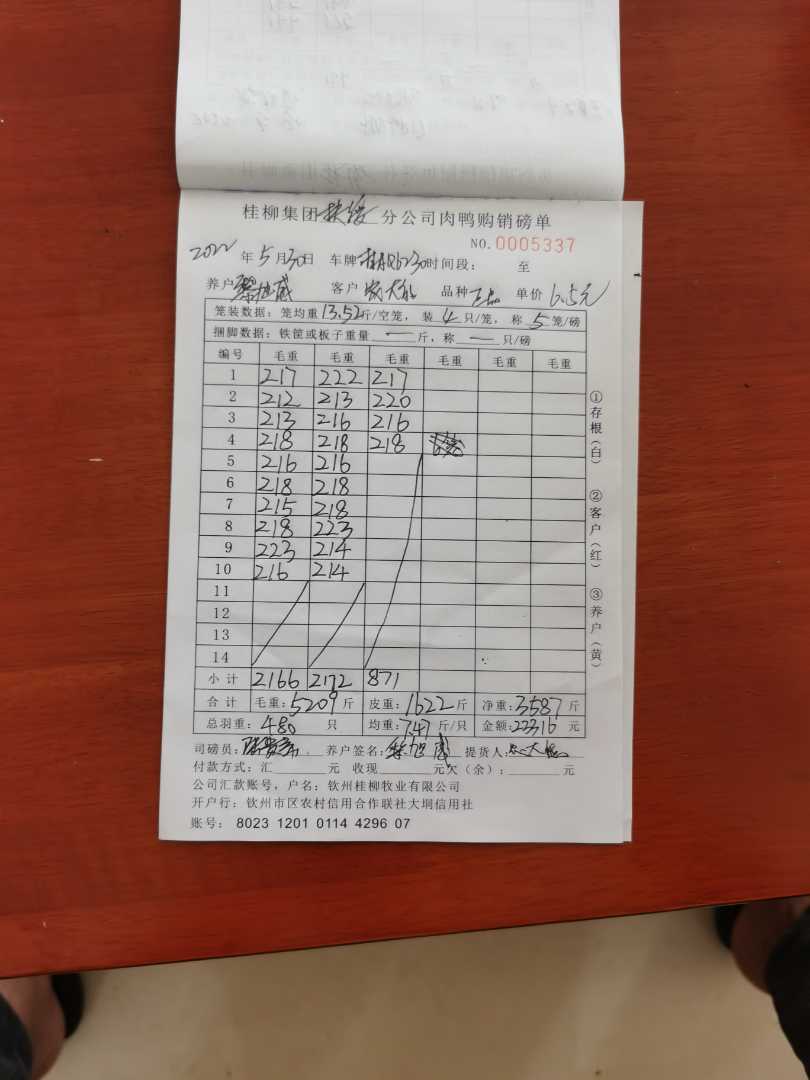 桂柳集团扶绥分公司肉鸭购销磅单
NO.0005337
2022年5月30日 车牌 时间段: 至
养户 客户 品种 单价6.5元
笼装数据:笼均重13.52斤/空笼,装4只/笼,称5笼/磅
捆脚数据:铁筐或板子重量—斤,称—只/磅
编号 毛重 毛重 毛重 毛重 毛重 毛重
1 217 222 217
2 212 213 220
3 213 216 216
4 218 218 218
5 216 216
6 218 218
7 215 218
8 218 223
9 223 214
10 216 214
11
12
13
14
小计 2166 2172 871
合计 毛重:5209斤 皮重:1622斤 净重:3587斤
总羽重:480只 均重:7.47斤/只 金额:23316元
司磅员: 养户签名: 提货人:
付款方式:汇 元 收现 元欠(余): 元
公司汇款账号,户名:钦州桂柳牧业有限公司
开户行:钦州市区农村信用合作联社大垌信用社
账号: 8023 1201 0114 4296 07
①存根(白) ②客户(红) ③养户(黄)